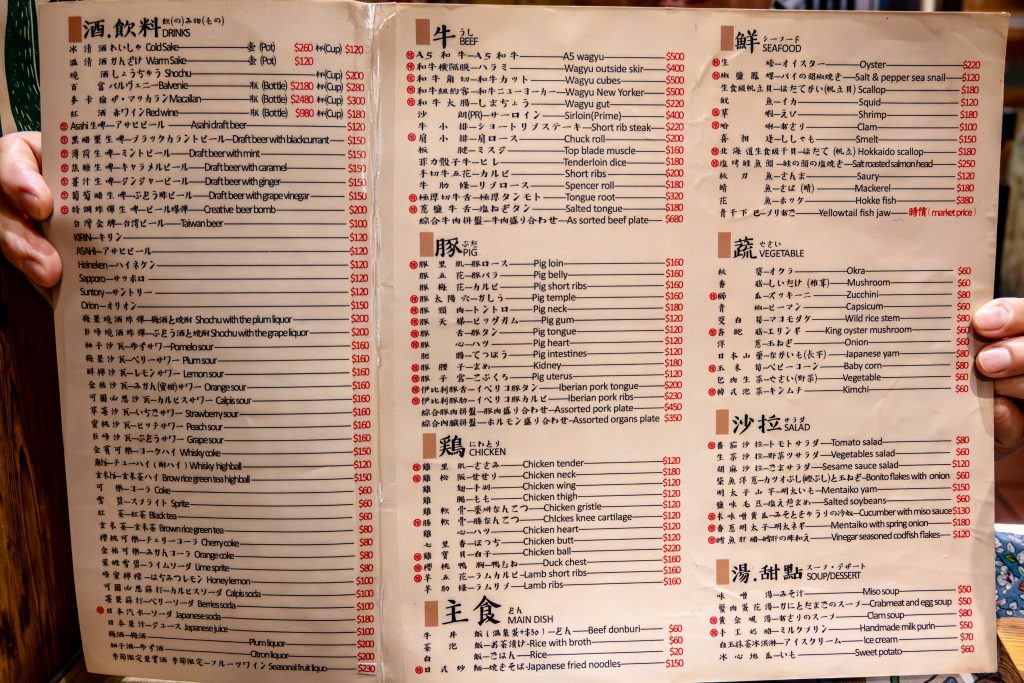 酒.飲料 飲(の)み物(もの)
DRINKS
冰清酒れいしゅ Cold Sake 壺 (Pot) $260 杯(Cup) $120
溫清酒かんざけ Warm Sake 壺 (Pot) $120
燒酒しょうちゅう Shochu 杯(Cup) $200
百富バルヴェニー Balvenie 瓶 (Bottle) $2180 杯(Cup) $280
麥卡倫ザ・マッカラン Macallan 瓶 (Bottle) $2480 杯(Cup) $300
紅酒赤ワイン Red wine 瓶 (Bottle) $980 杯(Cup) $180
Asahi生啤—アサヒビール Asahi draft beer $120
黑醋栗生啤—ブラックカラントビール Draft beer with blackcurrant $150
薄荷生啤—ミントビール Draft beer with mint $150
焦糖生啤—キャラメルビール Draft beer with caramel $150
薑汁生啤—ジンジャービール Draft beer with ginger $150
葡萄醋生啤—ぶどう酢ビール Draft beer with grape vinegar $150
特調炸彈生啤—ビール爆弾 Creative beer bomb $200
台灣金牌—台湾ビール Taiwan beer $100
KIRIN—キリン $120
ASAHI—アサヒビール $120
Heineken—ハイネケン $120
Sapporo—サッポロ $120
Suntory—サントリー $120
Orion—オリオン $150
Shochu with the plum liquor $200
Shochu with the grape liquor $200
柚子沙瓦—ゆずサワー Pomelo sour $160
Plum sour $160
檸檬沙瓦—レモンサワー Lemon sour $160
金桔沙瓦—みかん(蜜柑)サワー Orange sour $160
可爾必思沙瓦—カルピスサワー Calpis sour $160
草莓沙瓦—いちごサワー Strawberry sour $160
水蜜桃沙瓦—ピッチサワー Peach sour $160
巨峰沙瓦—ぶどうサワー Grape sour $160
金賓可樂—コークハイ Whisky coke $150
Whisky highball $120
玄米hi—玄米茶ハイ Brown rice green tea highball $150
可樂—コーラ Coke $60
雪碧—スプライト Sprite $60
紅茶—紅茶 Black tea $60
玄米茶—玄米茶 Brown rice green tea $80
櫻桃可樂—チェリーコーラ Cherry coke $80
金桔可樂—みかんコーラ Orange coke $80
萊姆雪碧—ライムソーダ Lime sprite $80
蜂蜜檸檬—はちみつレモン Honey lemon $100
可爾必思蘇打—カルピスソーダ Calpis soda $100
莓果蘇打—ベリーソーダ Berries soda $100
日本汽水—ソーダ Japanese soda $180
日本果汁—ジュース Japanese juice $100
梅酒—梅酒 Plum liquor $200
柚子酒—ゆず酒 Citron liquor $200
季節限定果實酒 季節限定—フルーツワイン Seasonal fruit liquo $230
牛 うし
BEEF
A5和牛—A5和牛 A5 wagyu $500
和牛橫隔膜—ハラミ Wagyu outside skir $400
和牛角切—和牛カット Wagyu cubes $500
和牛紐約客—和牛ニューヨーカー Wagyu New Yorker $500
和牛大腸—しまちょう Wagyu gut $220
沙朗(PR)—サーロイン Sirloin(Prime) $400
牛小排—ショートリブステーキ Short rib steak $220
肩小排—肩ロース Chuck roll $200
板腱—ミスジ Top blade muscle $160
菲力骰子牛—ヒレ Tenderloin dice $180
手切牛五花—カルビ Short ribs $200
牛肋條—リブロース Spencer roll $180
極厚切牛舌—極厚タンモト Tongue root $320
蔥鹽牛舌—塩ねぎタン Salted tongue $180
綜合牛肉拼盤—牛肉盛り合わせ As sorted beef plate $680
豚 ぶた
PIG
豚里肌—豚ロース Pig loin $160
豚五花—豚バラ Pig belly $160
豚梅花—カルビ Pig short ribs $160
豚太陽穴—かしら Pig temple $160
豚頸肉—トントロ Pig neck $180
豚天梯—ビッグガム Pig gum $120
豚舌—豚タン Pig tongue $120
豚心—ハツ Pig heart $120
肥腸—てつぽう Pig intestines $120
豚腰子—まめ Kidney $180
豚子宮—こぶくろ Pig uterus $120
伊比利豚舌—イベリコ豚タン Iberian pork tongue $200
伊比利豚肋—イベリコ豚カルビ Iberian pork ribs $230
綜合豚肉拼盤—豚肉盛り合わせ Assorted pork plate $450
綜合內臟拼盤—ホルモン盛り合わせ Assorted organs plate $350
鶏 にわとり
CHICKEN
雞里肌—ささみ Chicken tender $120
雞松阪—せせり Chicken neck $180
雞翅—手羽 Chicken wing $120
雞腿—もも Chicken thigh $120
雞軟骨—薬研なんこつ Chicken gristle $120
膝軟骨—膝なんこつ Chickes knee cartilage $120
雞心—ハツ Chicken heart $120
七里香—ぼっち Chicken butt $120
雞寶貝—白子 Chicken ball $220
櫻桃鴨胸—鴨むね Duck chest $160
羊五花—ラムカルビ Lamb short ribs $160
羊肋條—ラムリブ Lamb ribs $160
主食 どん
MAIN DISH
牛丼飯(溫泉蛋+$30)—どん Beef donburi $60
茶泡飯—お茶漬け Rice with broth $60
白飯—ごはん Rice $20
日式炒麵—焼きそば Japanese fried noodles $150
鮮 シーフード
SEAFOOD
生蠔—オイスター Oyster $220
椒鹽鳳螺—バイの胡椒焼き Salt & pepper sea snail $120
生食級帆立貝—ほたてがい(帆立貝) Scallop $180
魷魚—イカ Squid $120
草蝦—えび Shrimp $180
蛤蜊—あさり Clam $100
喜相逢—ししゃも Smelt $150
北海道生食級干貝—ほたて(帆立) Hokkaido scallop $180
塩烤鮭魚頭—鮭の頭の塩焼き Salt roasted salmon head $250
秋刀魚—さんま Saury $120
鯖魚—さば(鯖) Mackerel $180
花魚—ホッケ Hokke fish $380
青甘下巴—ブリあご Yellowtail fish jaw 時價(market price)
蔬 やさい
VEGETABLE
秋葵—オクラ Okra $60
香菇—しいたけ(椎茸) Mushroom $60
櫛瓜—ズッキーニ Zucchini $80
青椒—ピーマン Capsicum $60
茭白筍—マコモダケ Wild rice stem $80
杏鮑菇—エリンギ King oyster mushroom $60
洋蔥—玉ねぎ Onion $60
日本山藥—ながいも(長芋) Japanese yam $80
玉米筍—ベビーコーン Baby corn $80
包肉生菜—やさい(野菜) Vegetable $60
韓式泡菜—キンムチ Kimchi $60
沙拉 サラダ
SALAD
番茄沙拉—トモトサラダ Tomato salad $80
生菜沙拉—野菜サラダ Vegetables salad $80
胡麻沙拉—ごまサラダ Sesame sauce salad $80
柴魚洋蔥—カツオぶし(鰹ぶし)と玉ねぎ Bonito flakes with onion $60
明太子山芋—明太いも Mentaiko yam $150
鹽味毛豆—塩えだまめ Salted soybeans $60
米味噌黃瓜—みそときゅうりの冷奴 Cucumber with miso sauce $130
香蔥明太子—明太ネギ Mentaiko with spring onion $180
鱈魚肝醋—鱈肝の酢和え Vinegar seasoned codfish flakes $120
湯.甜點 スープ・デザート
SOUP/DESSERT
味噌湯—みそ汁 Miso soup $50
蟹肉蛋花湯—かにとたまごのスープ Crabmeat and egg soup $50
黃金蜆湯—あさりのスープ Clam soup $80
手工奶酪—ミルクプリン Handmade milk purin $50
白玉抹茶冰淇淋—アイスクリーム Ice cream $70
冰心地瓜—いも Sweet potato $60